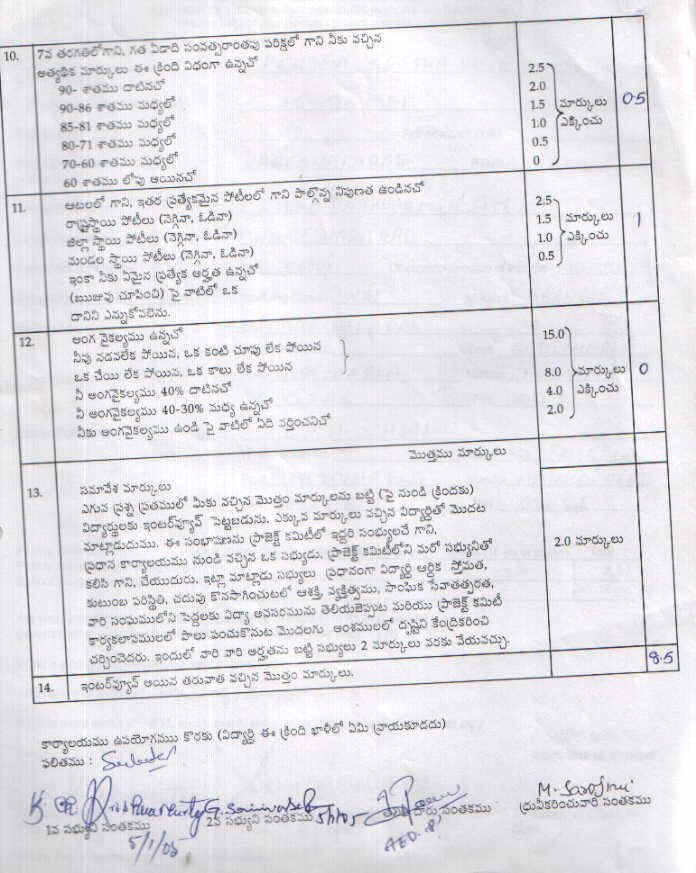 10. 7వ తరగతిలోగాని, గత ఏడాది సంవత్సరాంతపు పరిక్షలో గాని నీకు వచ్చిన
అత్యధిక మార్కులు ఈ క్రింది విధంగా ఉన్నచో
90- శాతము దాటినచో 2.5
90-86 శాతము మధ్యలో 2.0
85-81 శాతము మధ్యలో 1.5 మార్కులు 0.5
80-71 శాతము మధ్యలో 1.0 ఎక్కించు
70-60 శాతము మధ్యలో 0.5
60 శాతము లోపు అయినచో 0
11. ఆటలలో గాని, ఇతర ప్రత్యేకమైన పోటీలలో గాని పాల్గొన్న నిపుణత ఉండినచో
రాష్ట్రస్థాయి పోటీలు (నెగ్గినా, ఓడినా) 2.5
జిల్లా స్థాయి పోటీలు (నెగ్గినా, ఓడినా) 1.5 మార్కులు 1
మండల స్థాయి పోటీలు (నెగ్గినా, ఓడినా) 1.0 ఎక్కించు
ఇంకా నీకు ఏమైన ప్రత్యేక అర్హత ఉన్నచో 0.5
(ఋజువు చూపించి) పై వాటిలో ఒక
దానిని ఎన్నుకోవలెను.
12. అంగ వైకల్యము ఉన్నచో
నీవు నడవలేక పోయిన, ఒక కంటి చూపు లేక పోయిన 15.0
ఒక చేయి లేక పోయిన, ఒక కాలు లేక పోయిన
నీ అంగవైకల్యము 40% దాటినచో 8.0 మార్కులు 0
నీ అంగవైకల్యము 40-30% మధ్య ఉన్నచో 4.0 ఎక్కించు
నీకు అంగవైకల్యము ఉండి పై వాటిలో ఏది వర్తించనిచో 2.0
మొత్తము మార్కులు
13. సమావేశ మార్కులు
ఎగువ ప్రశ్న ప్రతములో మీకు వచ్చిన మొత్తం మార్కులను బట్టి (పై నుండి క్రిందకు)
విద్యార్థులకు ఇంటర్‌వ్యూవ్ పెట్టబడును. ఎక్కువ మార్కులు వచ్చిన విద్యార్థితో మొదట
మాట్లాడుదుము. ఈ సంభాషనను ప్రాజెక్ట్ కమిటీలో ఇద్దరి సంభ్యులచే గాని,
ప్రధాన కార్యాలయము నుండి వచ్చిన ఒక సభ్యుడు, ప్రాజెక్ట్ కమిటీలోని మరో సభ్యునితో 2.0 మార్కులు
కలిసి గాని, చేయుదురు. ఇట్లా మాట్లాడు సభ్యులు ప్రధానంగా విద్యార్థి ఆర్థిక స్తోమత,
కుటుంబ పరిస్థితి, చదువు కొనసాగించుటలో ఆశక్తి, వ్యక్తిత్వము, సాంఘిక సేవాతత్పరత,
వారి సంఘములోని పెద్దలకు విద్యా అవసరమును తెలియజెప్పుట మరియు ప్రాజెక్ట్ కమిటీ
కార్యకలాపములలో పాలు పంచుకొనుట మొదలగు అంశములలో దృష్టిని కేంద్రికరించి
చర్చించెదరు. ఇందులో వారి వారి అర్హతను బట్టి సభ్యులు 2 మార్కులు వరకు వేయవచ్చు.
14. ఇంటర్‌వ్యూవ్ అయిన తరువాత వచ్చిన మొత్తం మార్కులు. 8.5
కార్యాలయము ఉపయోగముు కొరకు (విద్యార్థి ఈ క్రింది ఖాళీలో ఏమి వ్రాయకూడదు)
ఫలితము : Selected
G. 5/1/05 M. Sarojini
1వ సభ్యుని సంతకము 2వ సభ్యుని సంతకము సంతకము ధ్రువీకరించువారి సంతకము
5/1/05 AED.